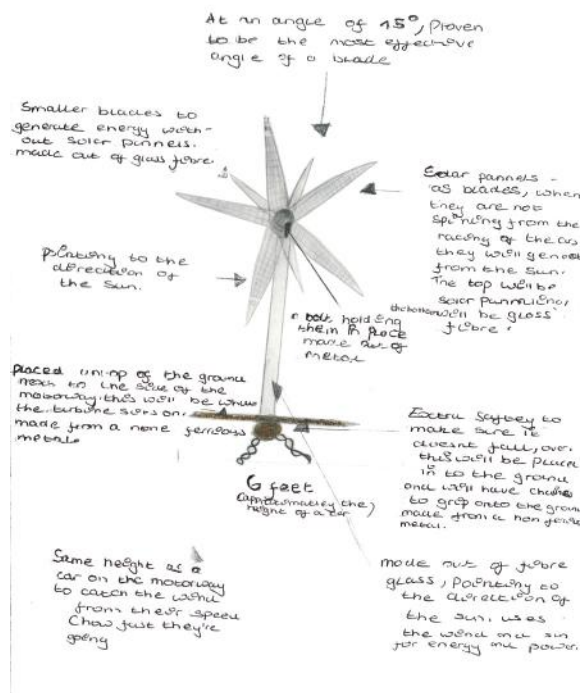 At an angle of 15°, Proven
to be the most effective
angle of a blade
Smaller blades to
generate energy with-
out solar pannels.
made out of glass fibre.
Solar pannels -
as blades, when
they are not
spinning from the
racing of the
they will
from the sun.
The top will be
solar
the bottom will be glass
fibre.
pointing to the
direction of
the sun.
a bolt holding
them in place
made out of
metal
placed on top of the ground
next to the side of the
motorway. this will be where
the turbine sits on.
made from a none ferrious
metal.
Extra saftey to
make sure it
doesnt fall over.
this will be
in to the ground
and will have chains
to grip onto the ground
made from a non
metal.
6 feet
(approximatley the
height of a car)
Same height as a
car on the motorway
to catch the wind
from their speed
(how fast they're
going
made out of fibre
glass, pointing to
the direction of
the sun. uses
the wind and sun
for energy and power.